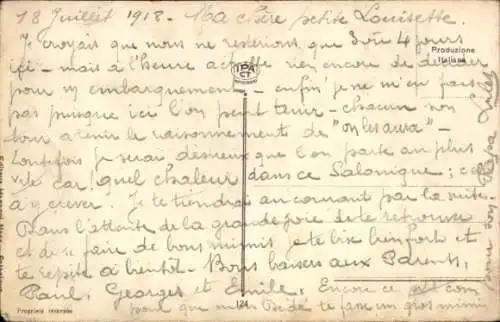 18 Juillet 1918. - Ma chère petite Louisette.
Je croyais que nous ne resterions que 3 ou 4 jours
ici - mais à l'heure actuelle rien encore de décidé
pour mon embarquement - enfin je ne m'en fais
pas puisque ici l'on peut tenir - chacun son
tour à tenir le raisonnement de "on les aura" -
Toutefois je serai désireux que l'on parte au plus
vite car! quel chaleur dans ce Salonique; c'est
à y crever. Je te tiendrai au courant par la suite.
Dans l'attente de la grande joie de te retrouver
et de te faire de bons mimis je te bise bien fort et
te répète à bientôt. - Bons baisers aux Parents,
Paul, Georges et Emile. Encore ce
pour que mon Bébé te fasse un gros mimi
Produzione
Italiana
IPA
CT
124
Proprietà riservata